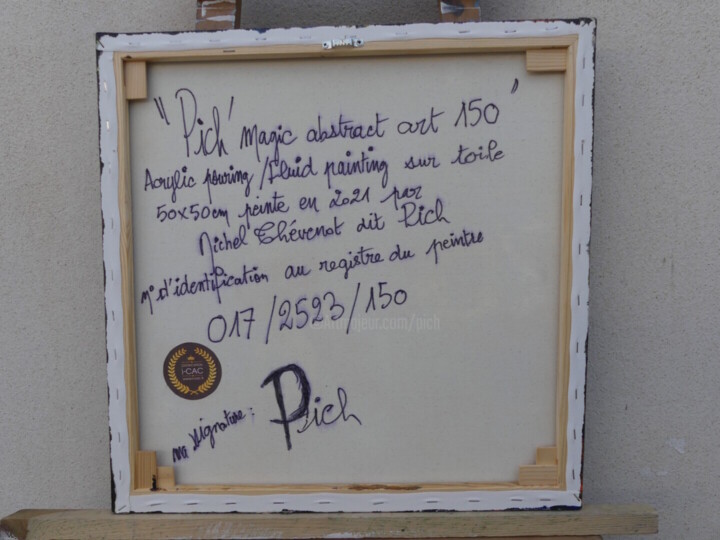 "Pich' magic abstract art 150"
Acrylic pouring/fluid painting sur toile
50x50cm peinte en 2021 par
Michel Thévenot dit Pich
n° d'identification au registre du peintre
017/2523/150
i-CAC
ma signature: Pich